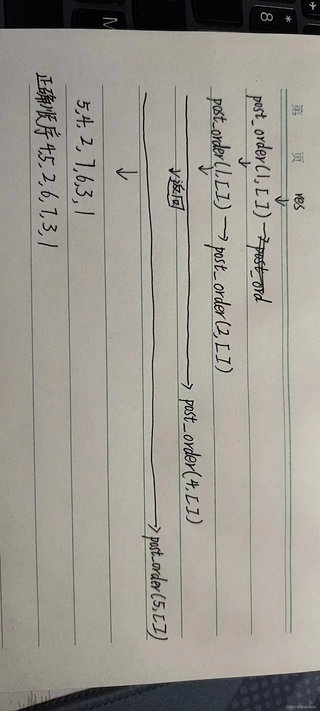 第 页
res
↓
post_order(1,[]) → post_ord
↓
post_order(1,[]) → post_order(2,[])
↓
↓返回 → post_order(4,[])
→ post_order(5,[])
↓
5,4,2,7,6,3,1
正确顺序 4,5,2,6,7,3,1